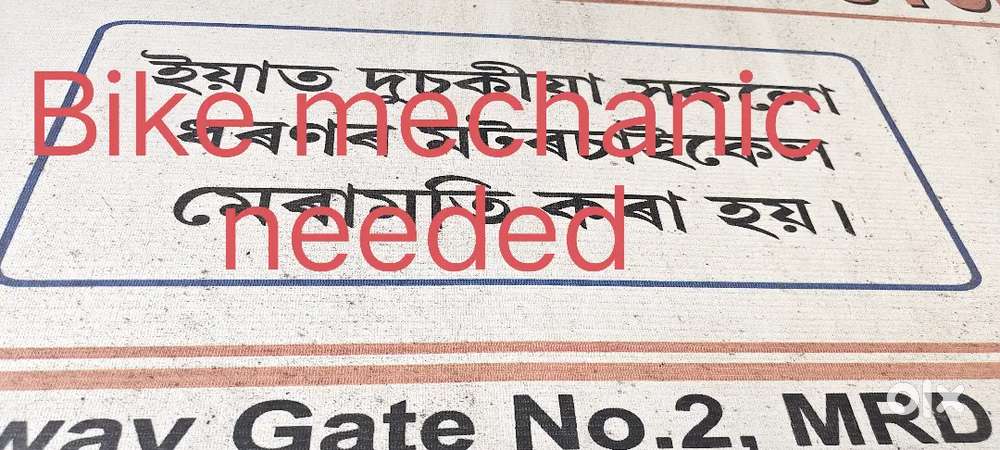 ইয়াত দুচকীয়া সকলো
ধৰণৰ মটৰচাইকেল
মেৰামতি কৰা হয়।
Bike mechanic
needed
way Gate No.2, MRD
olx